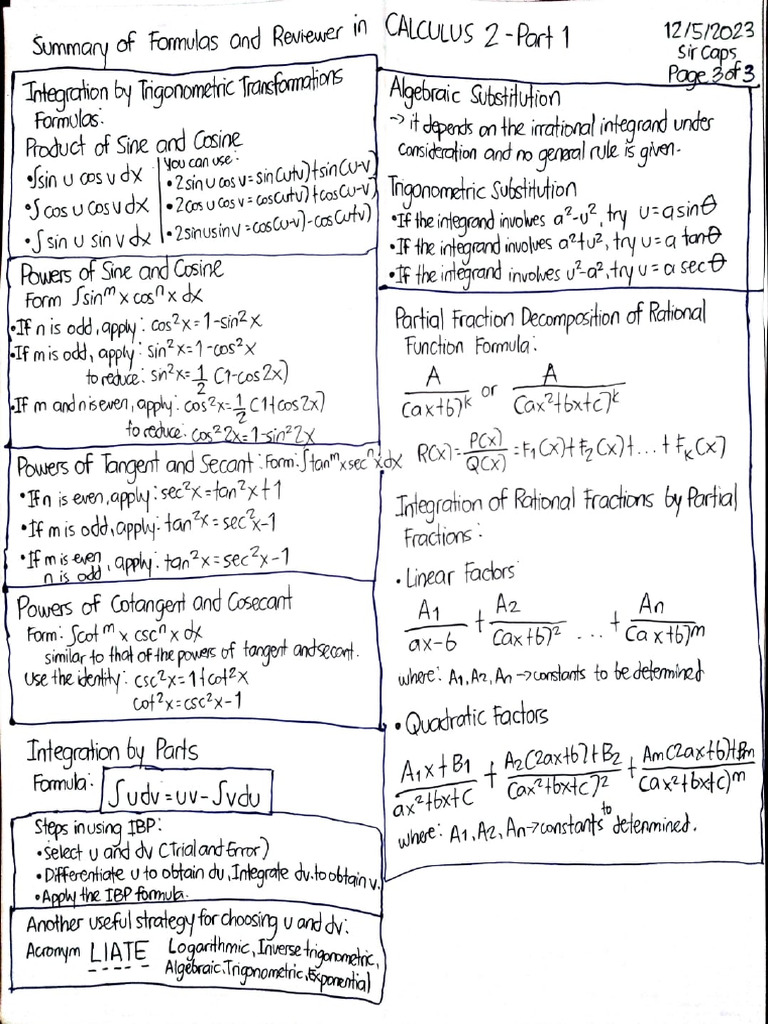 Summary of Formulas and Reviewer in CALCULUS 2 - Part 1
12/5/2023
Sir Caps
Page 3 of 3
Integration by Trigonometric Transformations
Formulas:
Product of Sine and Cosine
• ∫sin u cos v dx
• ∫cos u cos v dx
• ∫sin u sin v dx
You can use:
• 2sin u cos v = sin(u+v)+sin(u-v)
• 2cos u cos v = cos(u+v)+cos(u-v)
• 2sin u sin v = cos(u-v)-cos(u+v)
Powers of Sine and Cosine
Form ∫sin^m x cos^n x dx
• If n is odd, apply: cos²x = 1-sin²x
• If m is odd, apply: sin²x = 1-cos²x
to reduce: sin²x = 1/2 (1-cos2x)
• If m and n is even, apply: cos²x = 1/2 (1+cos2x)
to reduce: cos²2x = 1-sin²2x
Powers of Tangent and Secant: Form: ∫tan^m x sec^n x dx
• If n is even, apply: sec²x = tan²x+1
• If m is odd, apply: tan²x = sec²x-1
• If m is even n is odd, apply: tan²x = sec²x-1
Powers of Cotangent and Cosecant
Form: ∫cot^m x csc^n x dx
similar to that of the powers of tangent and secant.
Use the identity: csc²x = 1+cot²x
cot²x = csc²x-1
Integration by Parts
Formula: ∫udv = uv - ∫vdu
Steps in using IBP:
• Select u and dv (Trial and Error)
• Differentiate u to obtain du, Integrate dv to obtain v.
• Apply the IBP formula.
Another useful strategy for choosing u and dv:
Acronym LIATE Logarithmic, Inverse trigonometric,
Algebraic, Trigonometric, Exponential
Algebraic Substitution
→ it depends on the irrational integrand under
consideration and no general rule is given.
Trigonometric Substitution
• If the integrand involves a²-u², try u = a sinθ
• If the integrand involves a²+u², try u = a tanθ
• If the integrand involves u²-a², try u = a secθ
Partial Fraction Decomposition of Rational
Function Formula:
A/(ax+b)^k or A/(ax²+bx+c)^k
R(x) = P(x)/Q(x) = F₁(x)+F₂(x)+...+Fₖ(x)
Integration of Rational Fractions by Partial
Fractions:
• Linear Factors
A₁/ax-b + A₂/(ax+b)² ... + An/(ax+b)^m
where: A₁, A₂, An → constants to be determined
• Quadratic Factors
A₁x+B₁/ax²+bx+c + A₂(2ax+b)+B₂/(ax²+bx+c)² + Am(2ax+b)+Bm/(ax²+bx+c)^m
where: A₁, A₂, An → constants to determined.